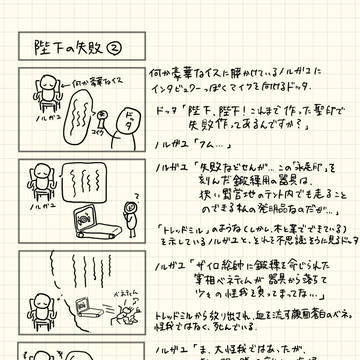 陛下の失敗②
何か豪華なイス
ノルガユ
マイク
ドッタ
何か豪華なイスに腰かけているノルガユに
インタビュワーっぽくマイクを向けるドッタ。
ドッタ「陛下、陛下！これまで作った聖印で
失敗作ってあるんですか？」
ノルガユ「フム…」
ノルガユ
？
ノルガユ「失敗などせんが…この『永走印』を
刻んだ鍛錬用の器具は、
狭い野営地のテント内でも走ること
のできる私の発明品なのだが…」
「トレッドミル」のような(しかし木と革でできている)
を示しているノルガユと、それを不思議そうに見るドッタ
ベネティム
ノルガユ「ザイロ総帥に鍛錬を命じられた
宰相ベネティムが器具から落ちて
全治の怪我を負ってまってな…」
トレッドミルから放り出され、血を流す顔面蒼白のベネ。
怪我ではなく、死んでいる。
ノルガユ「ま、大怪我ではあったが、